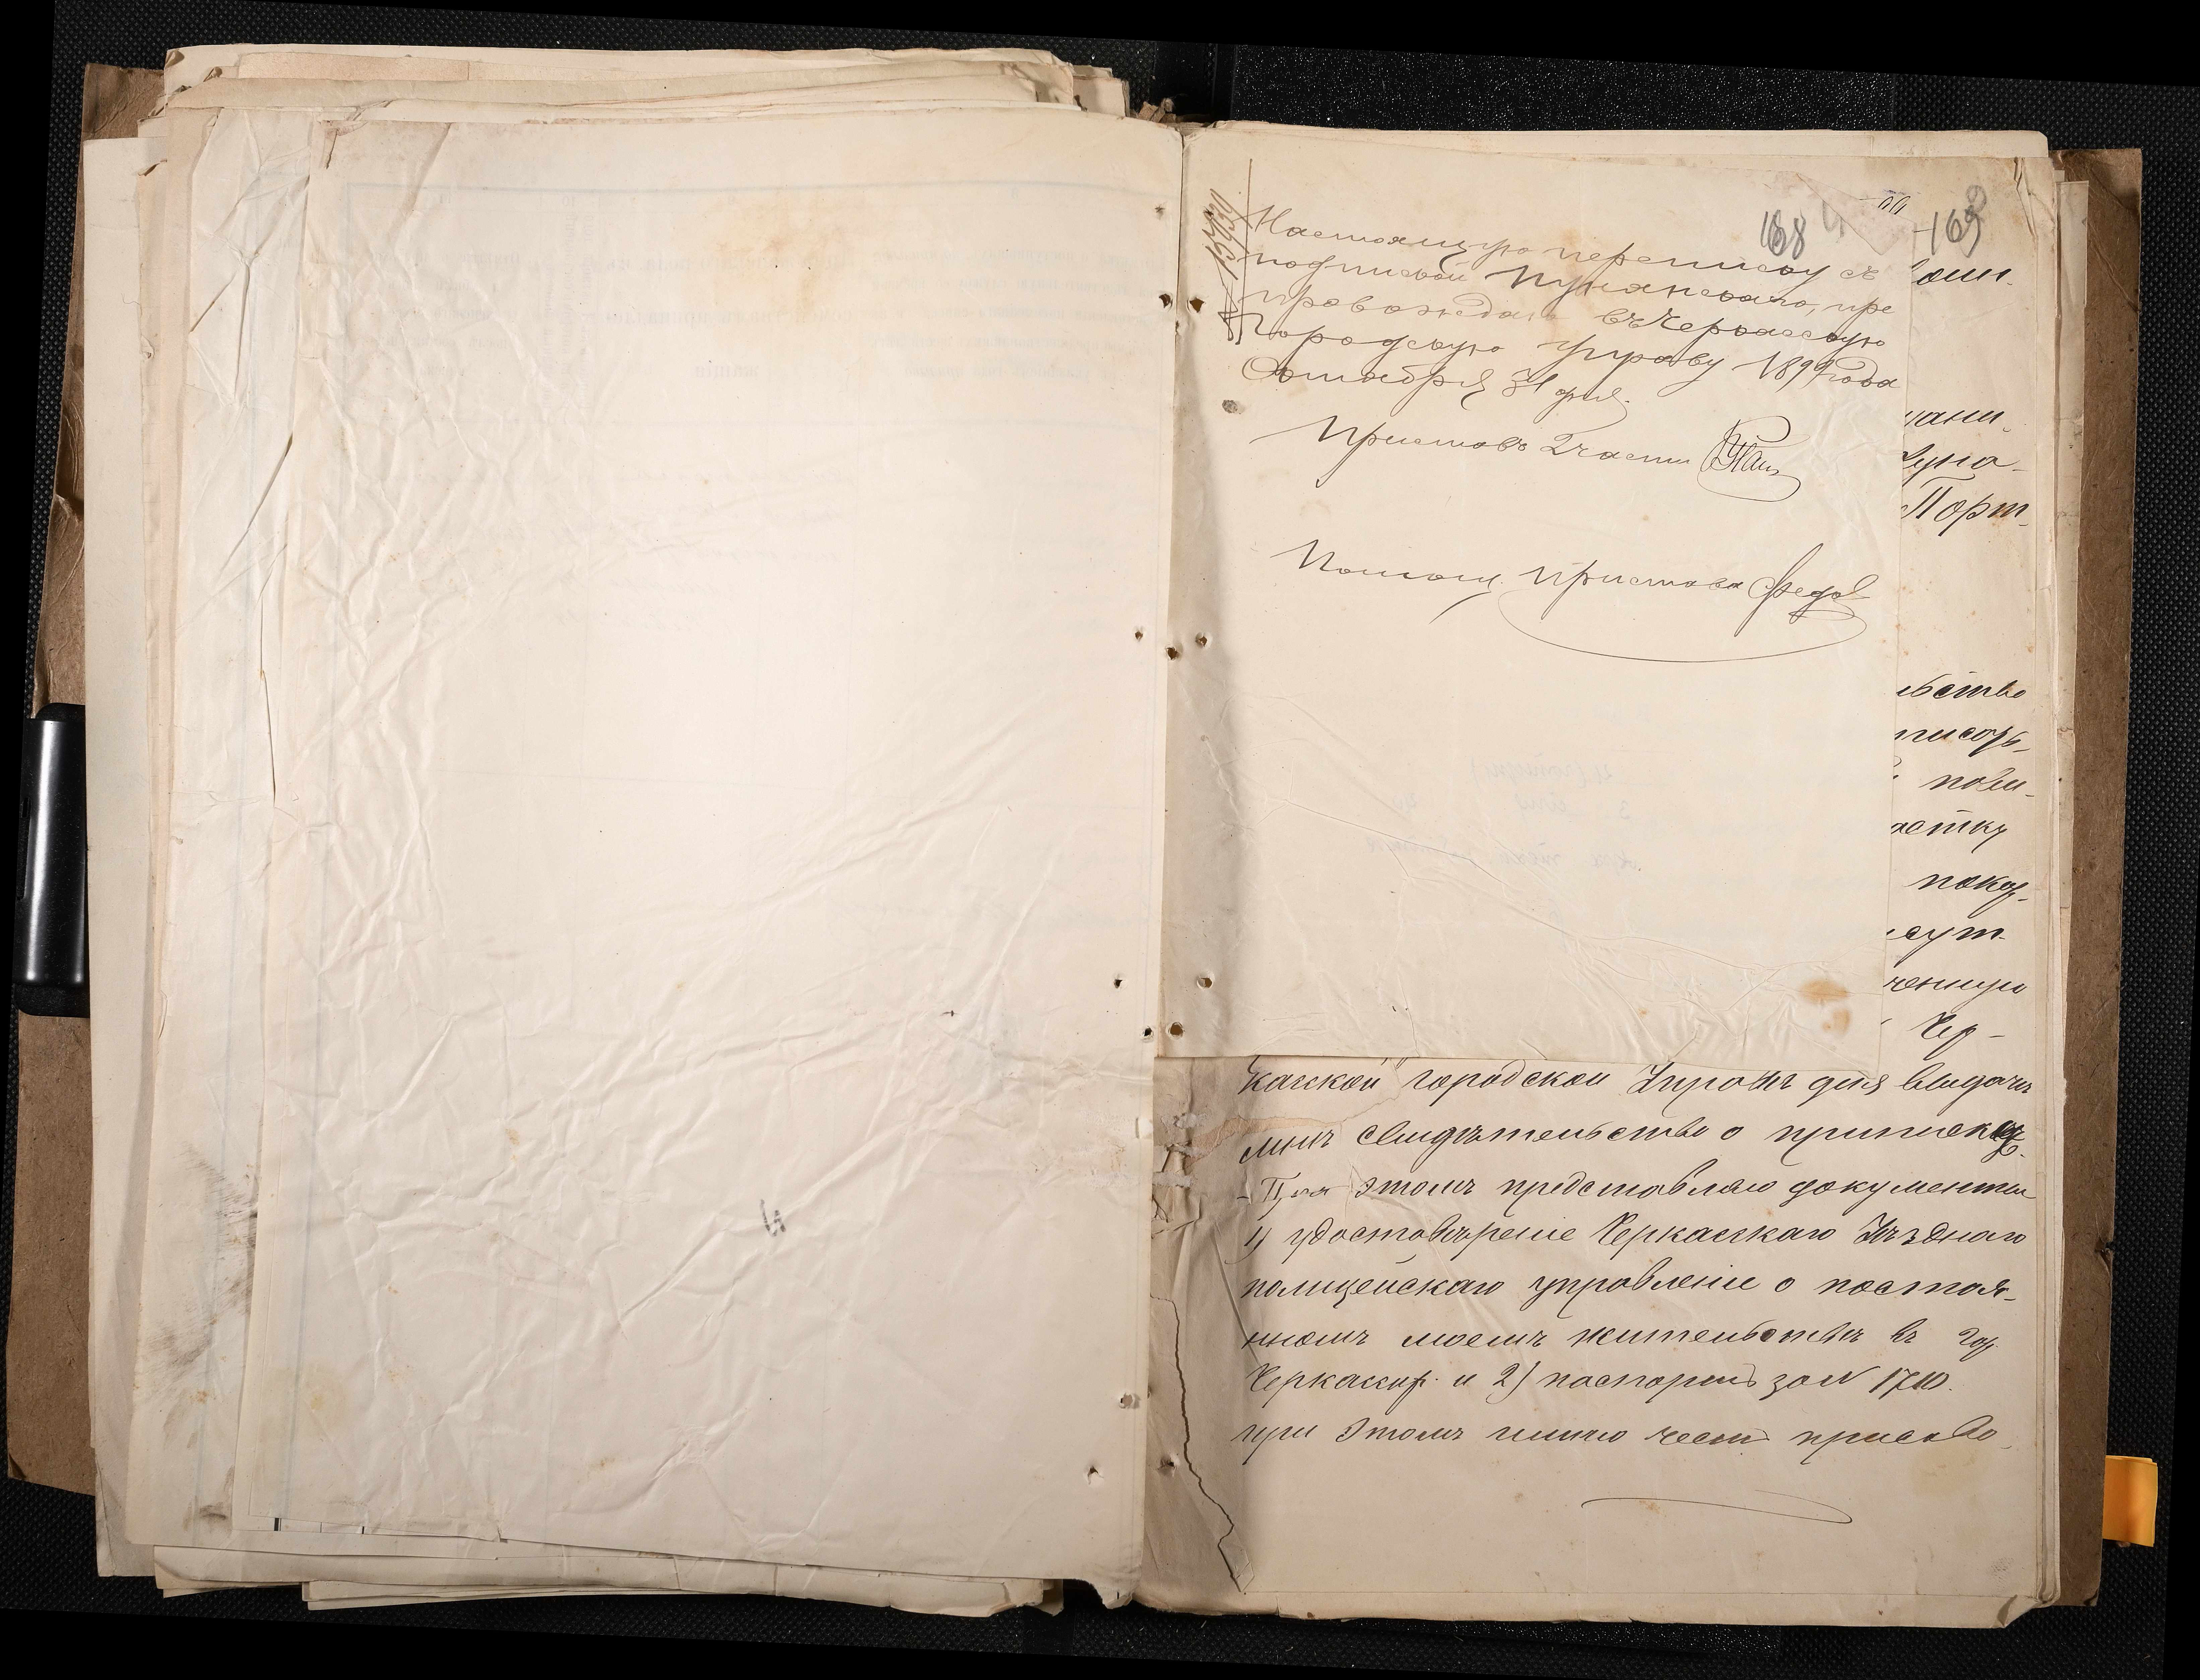 № 15830
168
169
Настоящую переписку съ
подпискою Лу, пре
провождаю въ Черкасскую
Городскую управу 1899 года
Октября 31 дня.
Приставъ 2 части
Помощ. Пристава Федо
ани.
Луна-
Порт-
ьство
писарь-
пови-
астку
покор-
сут-
ченную
Чер-
касской городской Управѣ для выдачи
мнѣ свидѣтельство о приписке
- При этомъ представляю документы
1) удостовѣреніе Черкасскаго Уѣзднаго
полицейскаго управленіе о постоя-
нномъ моемъ жительствѣ въ гор.
Черкассах. и 2) паспортъ за № 1710.
при этомъ имѣю честь присово-